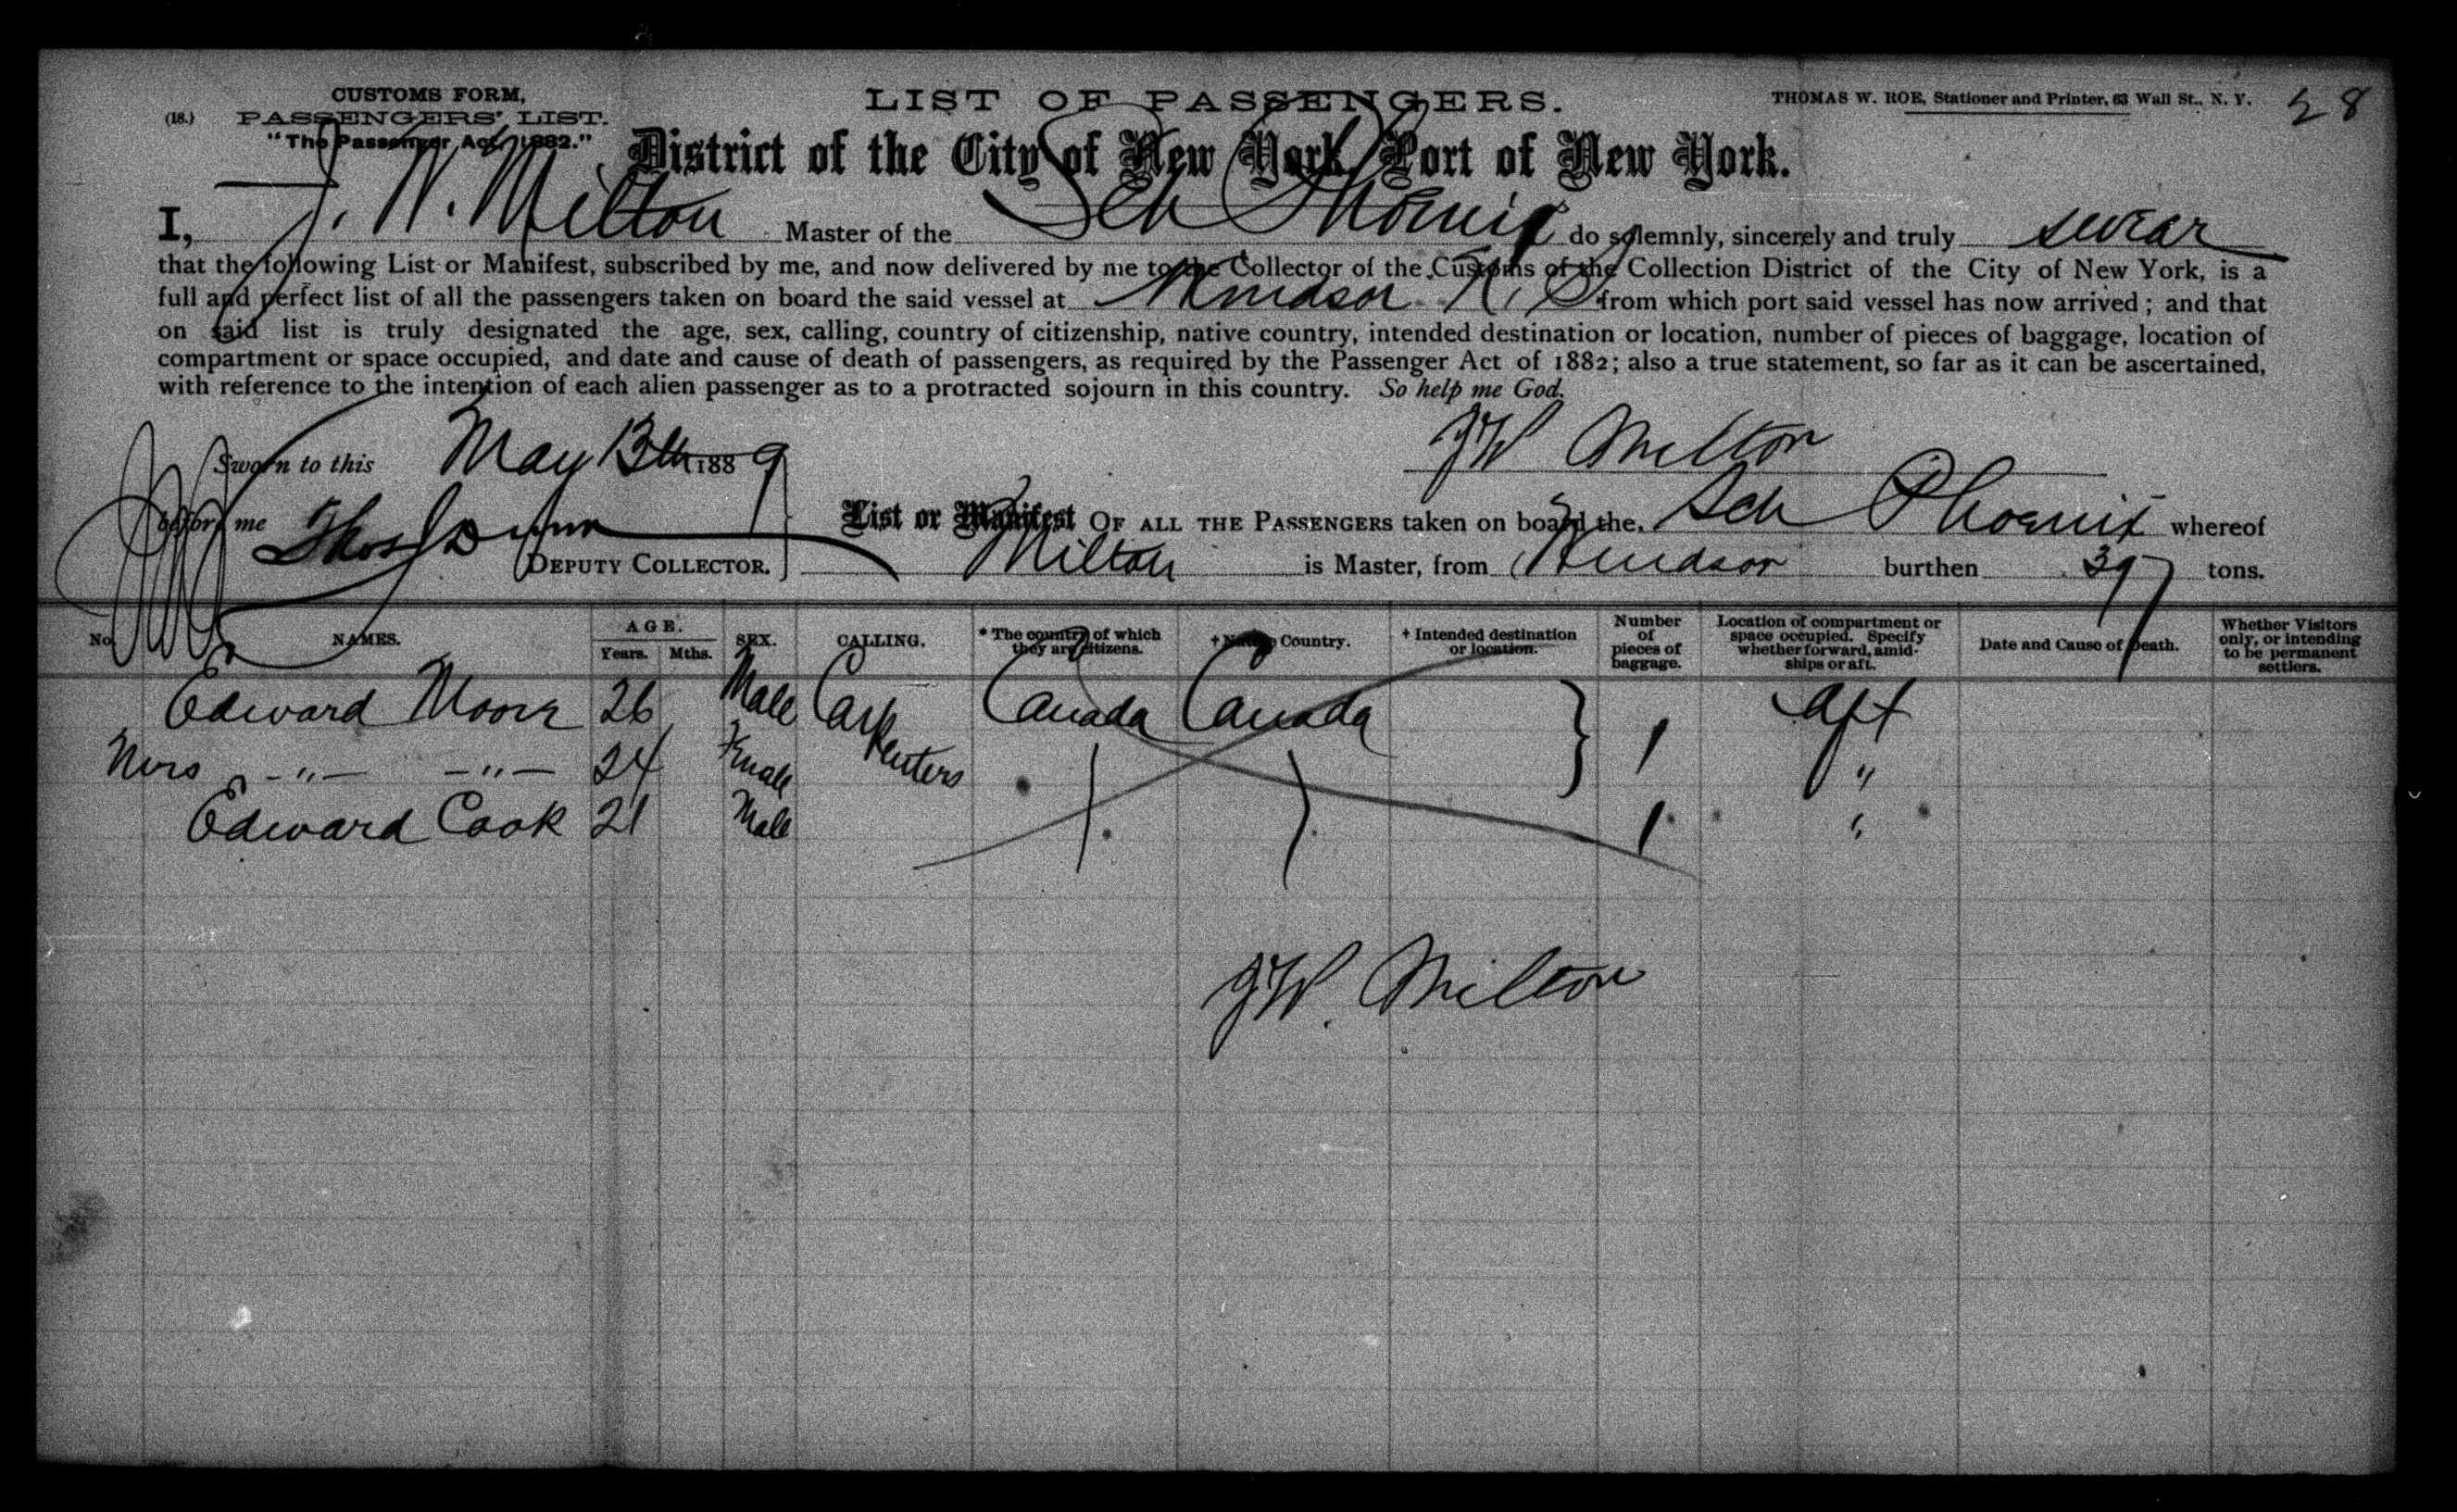 CUSTOMS FORM,
(18.) PASSENGERS' LIST.
"The Passenger Act, 1882."
LIST OF PASSENGERS.
THOMAS W. ROE, Stationer and Printer, 63 Wall St., N. Y.
28
District of the City of New York, Port of New York.
I, J. W. Milton Master of the Sch Phoenix do solemnly, sincerely and truly swear
that the following List or Manifest, subscribed by me, and now delivered by me to the Collector of the Customs of the Collection District of the City of New York, is a
full and perfect list of all the passengers taken on board the said vessel at Windsor N. S from which port said vessel has now arrived; and that
on said list is truly designated the age, sex, calling, country of citizenship, native country, intended destination or location, number of pieces of baggage, location of
compartment or space occupied, and date and cause of death of passengers, as required by the Passenger Act of 1882; also a true statement, so far as it can be ascertained,
with reference to the intention of each alien passenger as to a protracted sojourn in this country. So help me God.
Sworn to this May 13th 1889
JW Milton
before me Thos
DEPUTY COLLECTOR.
List or Manifest OF ALL THE PASSENGERS taken on board the Sch Phoenix whereof
Milton is Master, from Windsor burthen 397 tons.
No. NAMES. AGE. Years. Mths. SEX. CALLING. * The country of which they are citizens. † Native Country. † Intended destination or location. Number of pieces of baggage. Location of compartment or space occupied. Specify whether forward, amidships or aft. Date and Cause of Death. Whether Visitors only, or intending to be permanent settlers.
Edward Moore 26 Male Carpenters Canada Canada } 1 Aft
Mrs -"- -"- 24 Female "
Edward Cook 21 Male 1 "
JW. Milton